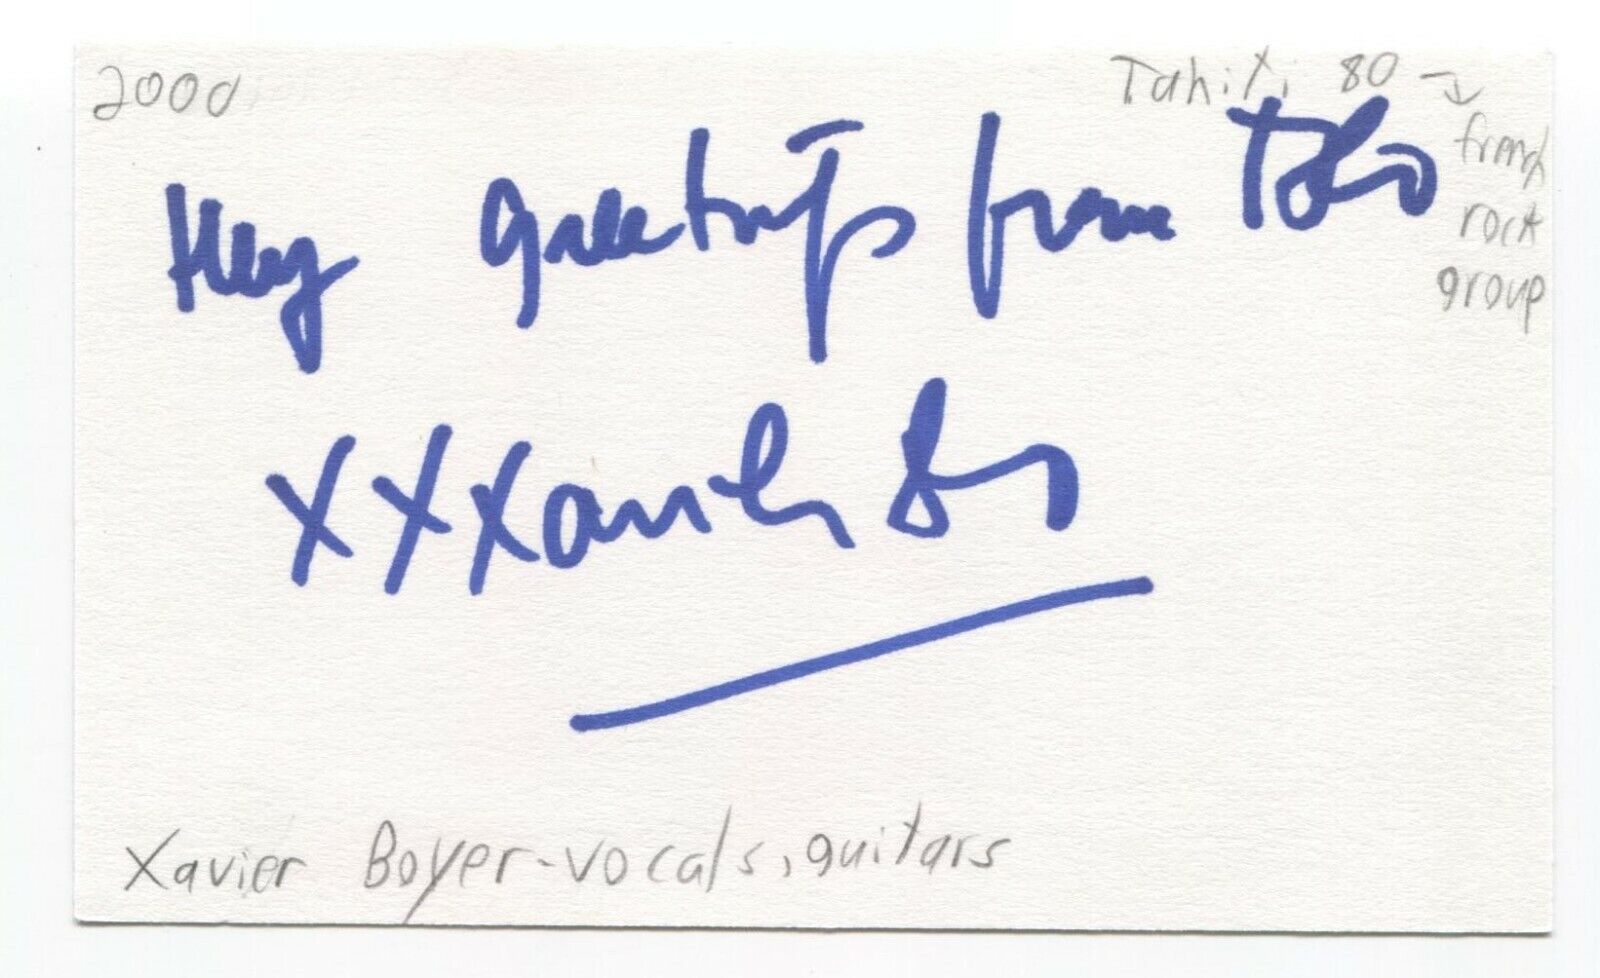 2000
Tahiti 80 →
french
rock
group
Hey greetings from T80
XXXavier Bo
Xavier Boyer-vocals, guitars